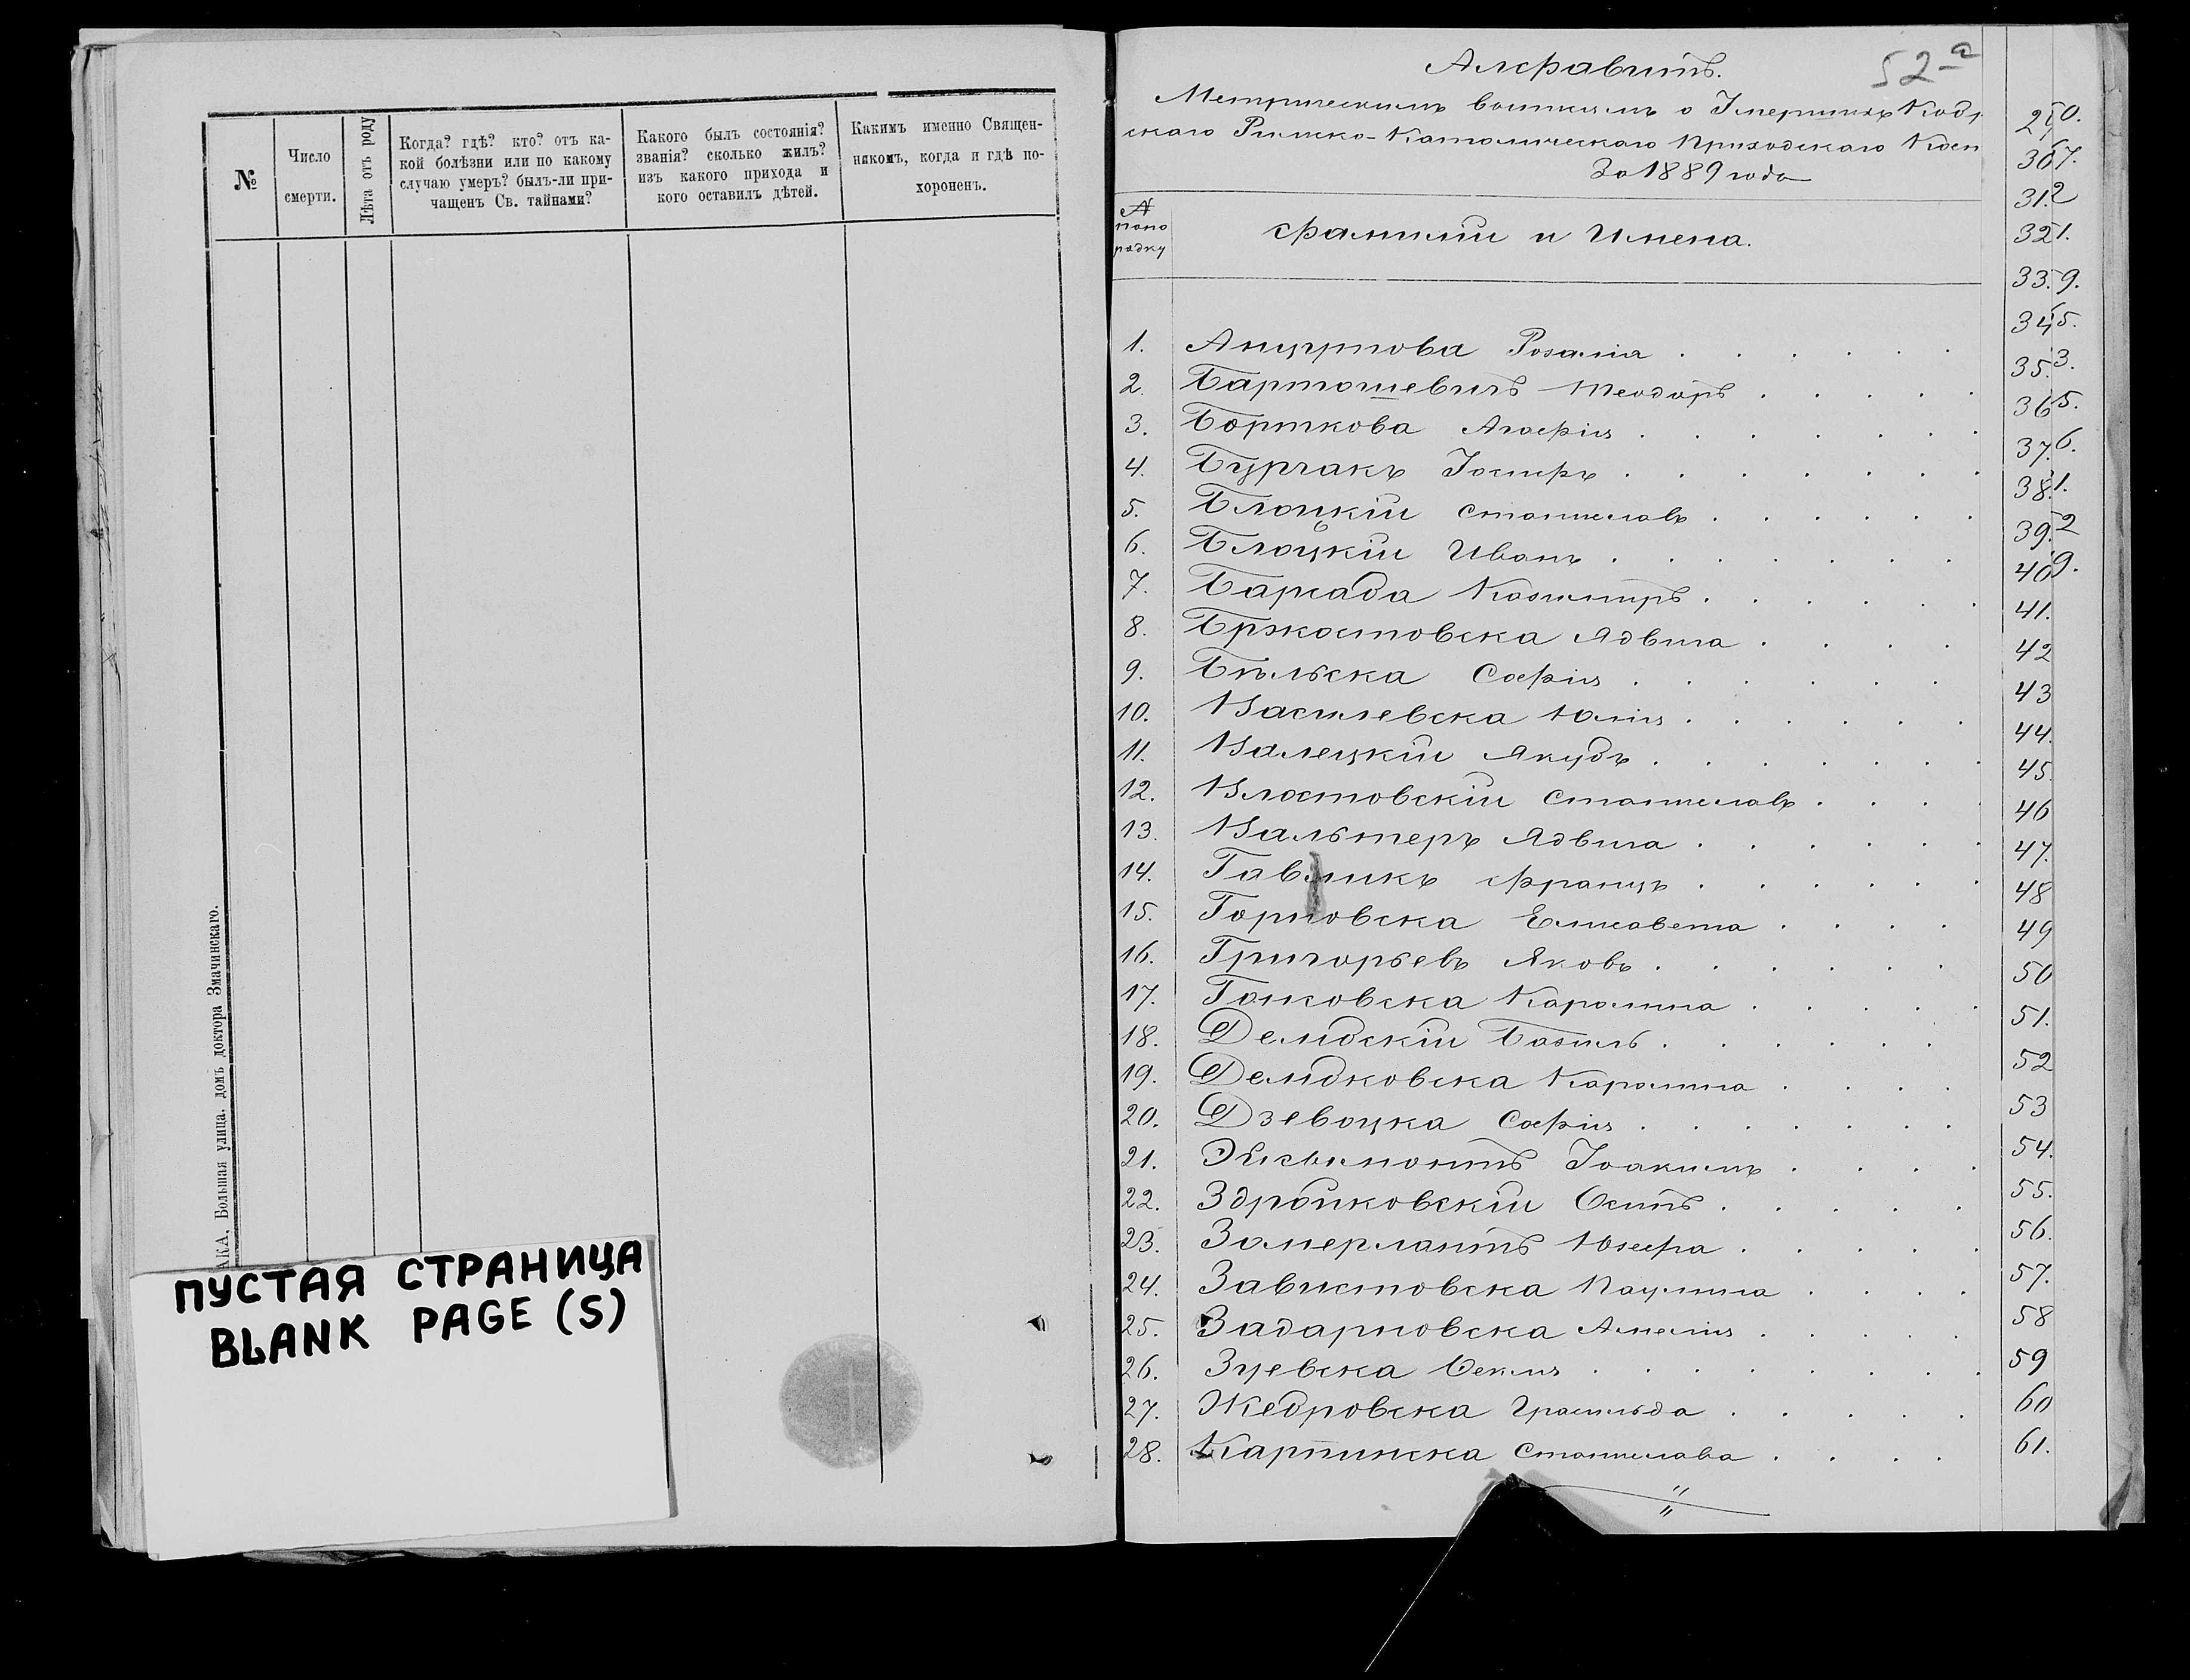 №
Число
смерти.
Лѣта отъ роду
Когда? гдѣ? кто? отъ ка-
кой болѣзни или по какому
случаю умеръ? былъ-ли при-
чащенъ Св. тайнами?
Какого былъ состоянія?
званія? сколько жилъ?
изъ какого прихода и
кого оставилъ дѣтей.
Какимъ именно Священ-
никомъ, когда и гдѣ по-
хороненъ.
АКА, Большая улица, домъ доктора Змачинскаго.
ПУСТАЯ СТРАНИЦА
BLANK PAGE (S)
52 а
Алфавитъ.
Метрическимъ выписямъ о Умершихъ
скаго Римско-Католическаго Приходскаго
За 1889 годъ
по по
рядку
Фамиліи и Имена.
1. Розалія
2. Бартошевичъ Теодоръ
3. Борткова Агафія
4. Бурчакъ Іосифъ
5. Блоцкій Станиславъ
6. Блоцкій Иванъ
7. Казимиръ
8. Бржостовска Ядвига
9. Бѣльска Софія
10. Василевска Юлія
11. Валецкій Якубъ
12. Властовскій Станиславъ
13. Вальтеръ Ядвига
14. Гавликъ Францъ
15. Горновска Елисавета
16. Григорьевъ Яковъ
17. Каролина
18. Дембскій Базыль
19. Дембковска Каролина
20. Дзевоцка Софія
21. Эйсымонтъ Іоакимъ
22. Здройковскій Осипъ
23. Зомерлантъ Юзефа
24. Завистовска Паулина
25. Задарновска Амелія
26. Зуевска
27. Жедровска
28. Карпинска Станислава
29
30
31.
32
33.
34
35.
36
37.
38.
39.
40
41.
42
43
44.
45.
46
47.
48
49
50
51.
52
53
54.
55.
56.
57.
58
59
60
61.
0.
7.
2
1.
9.
5.
3.
5.
6.
1.
2
9.